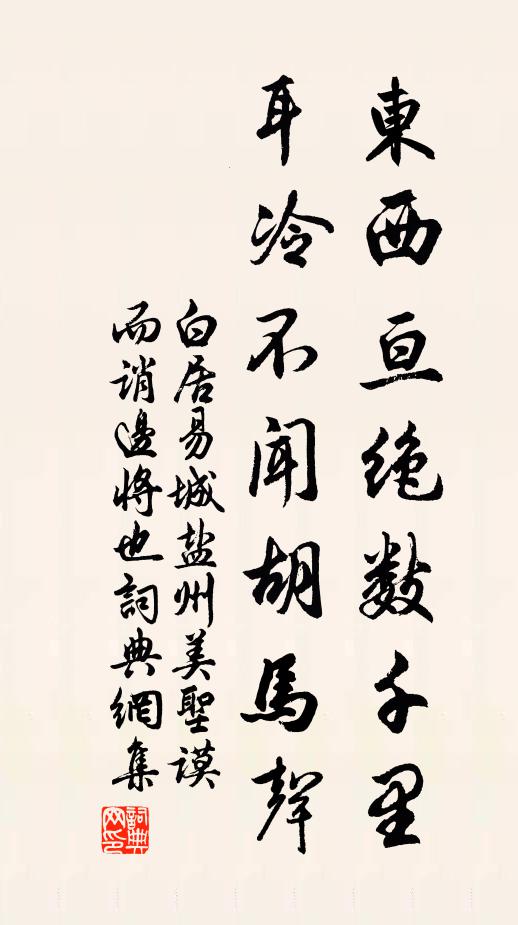 東西亘絶数千里
耳冷不聞胡馬聲
白居易城盐州美聖謨
而誚邊將也詞典網集
詞典
网印